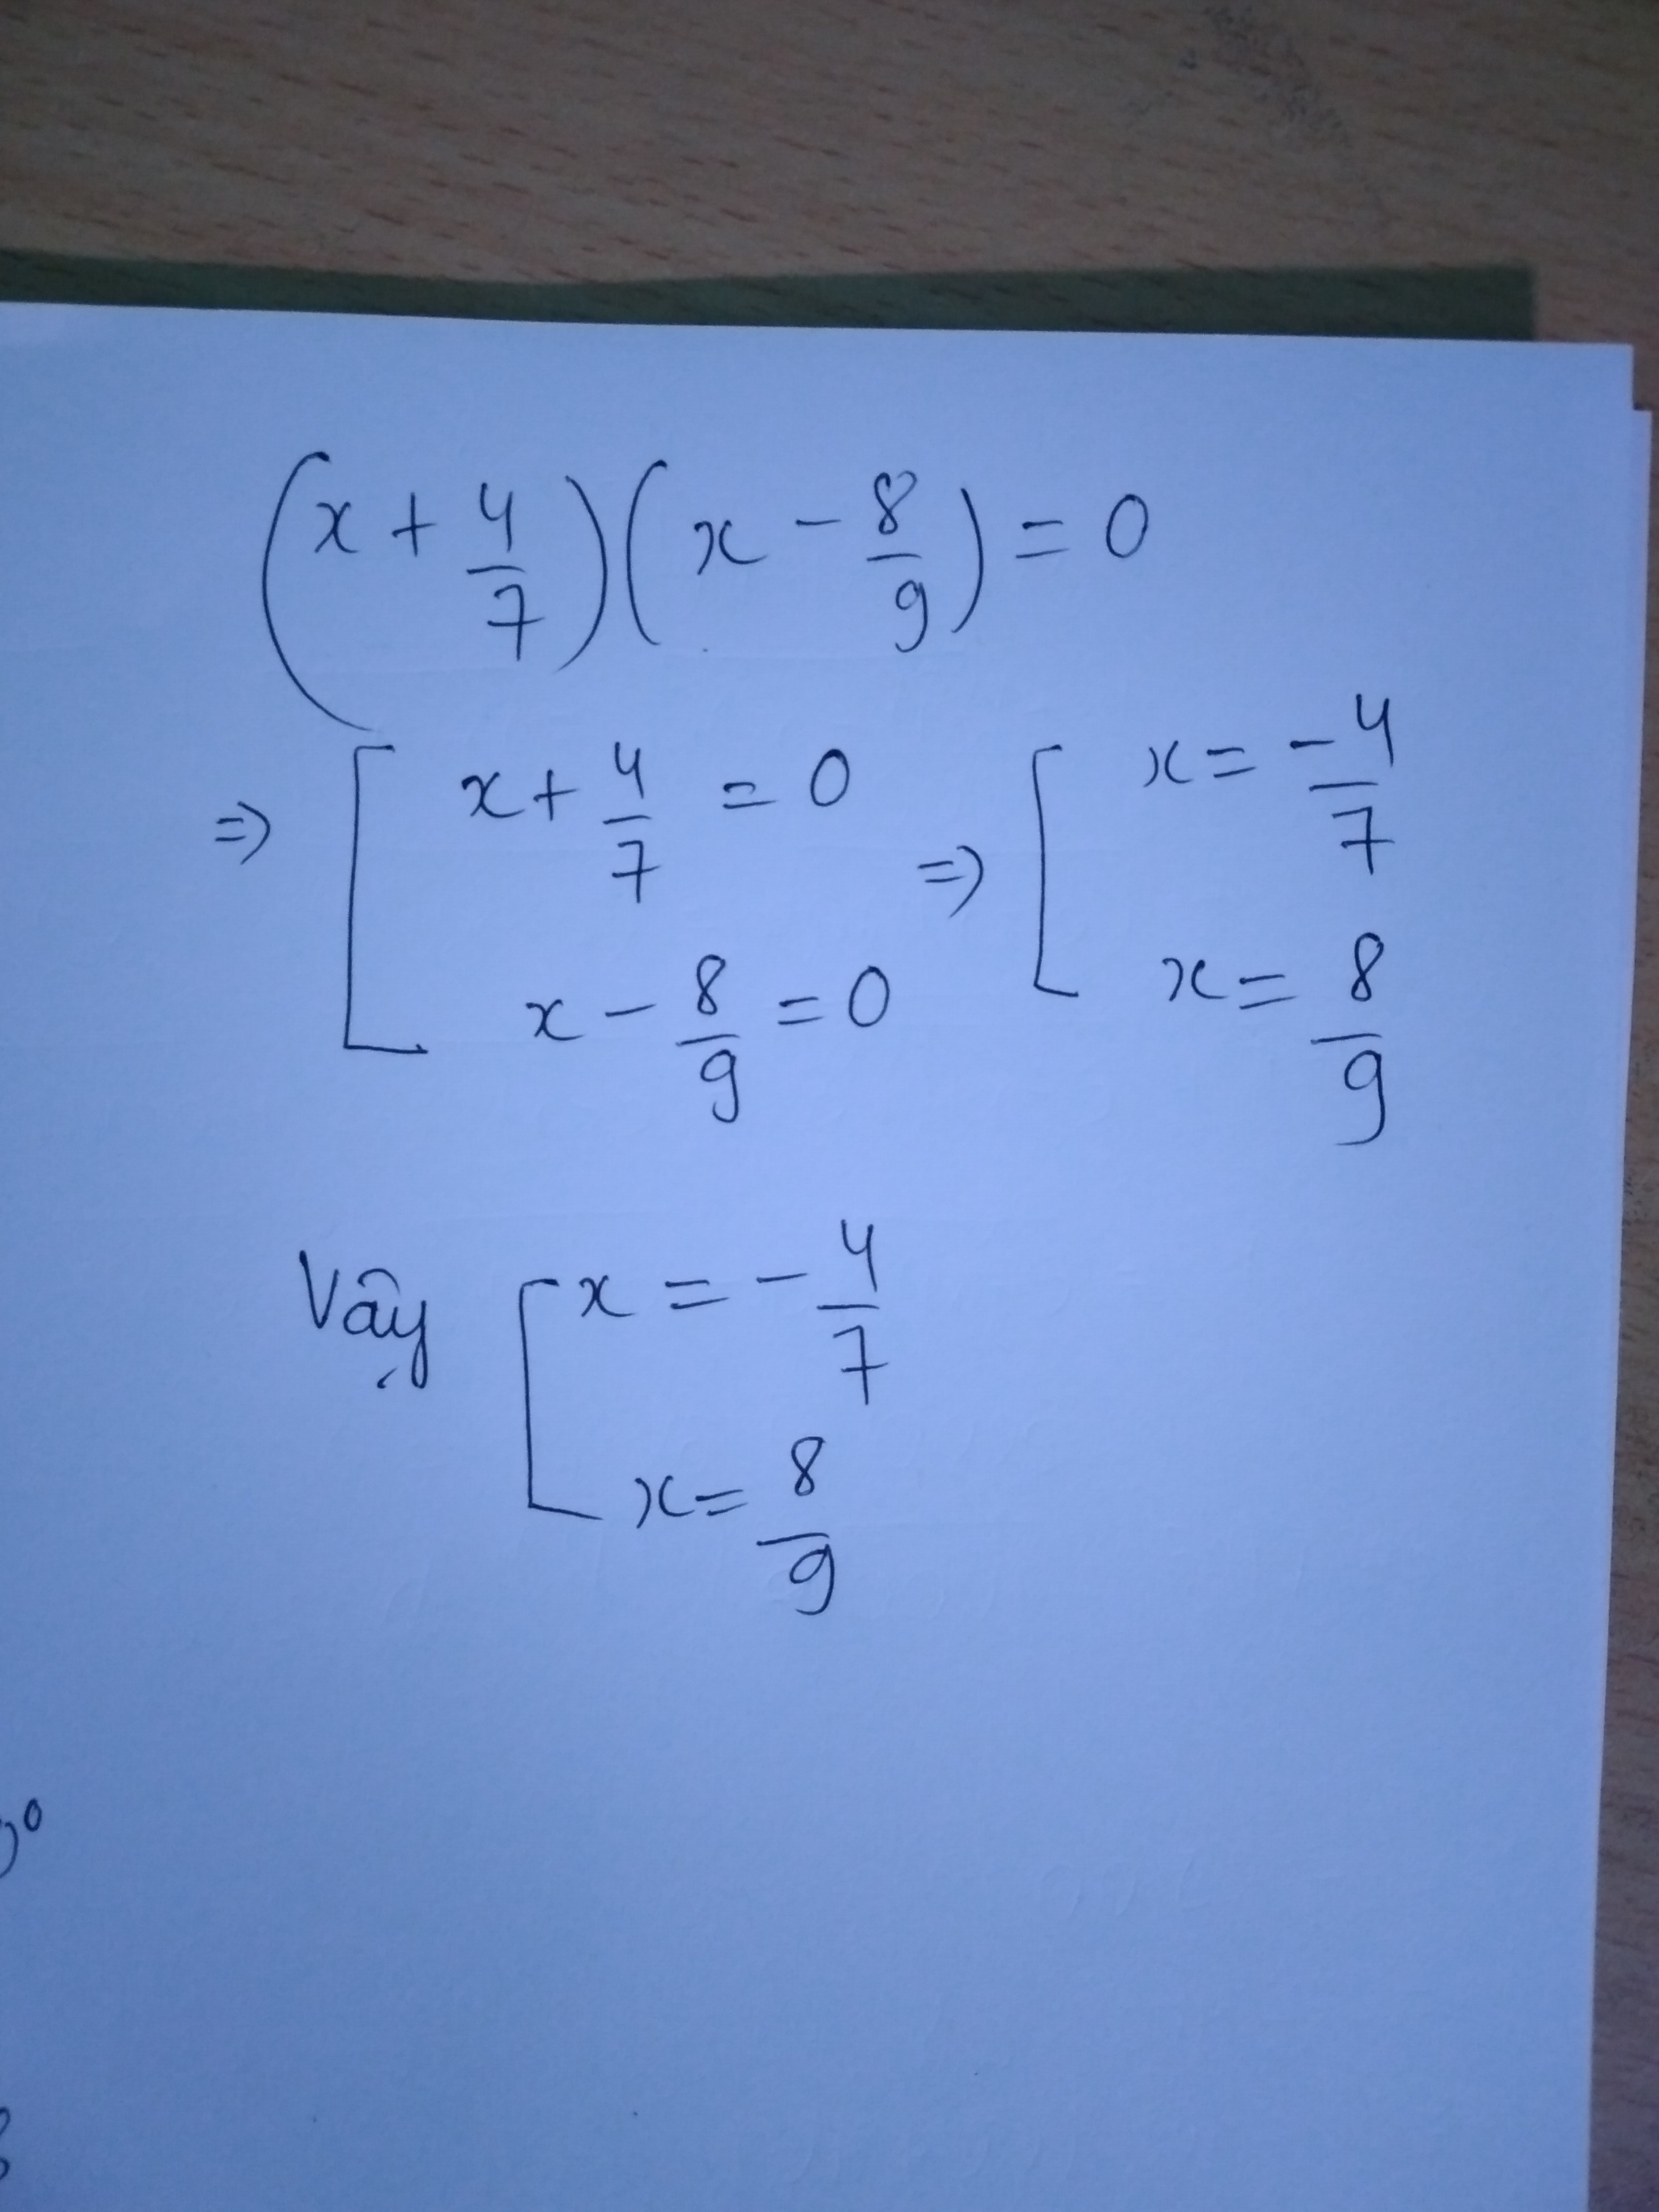 (x + 4/7)(x - 8/9) = 0
=> [ x + 4/7 = 0 => [ x = -4/7
x - 8/9 = 0 x = 8/9
Vậy [ x = -4/7
x = 8/9